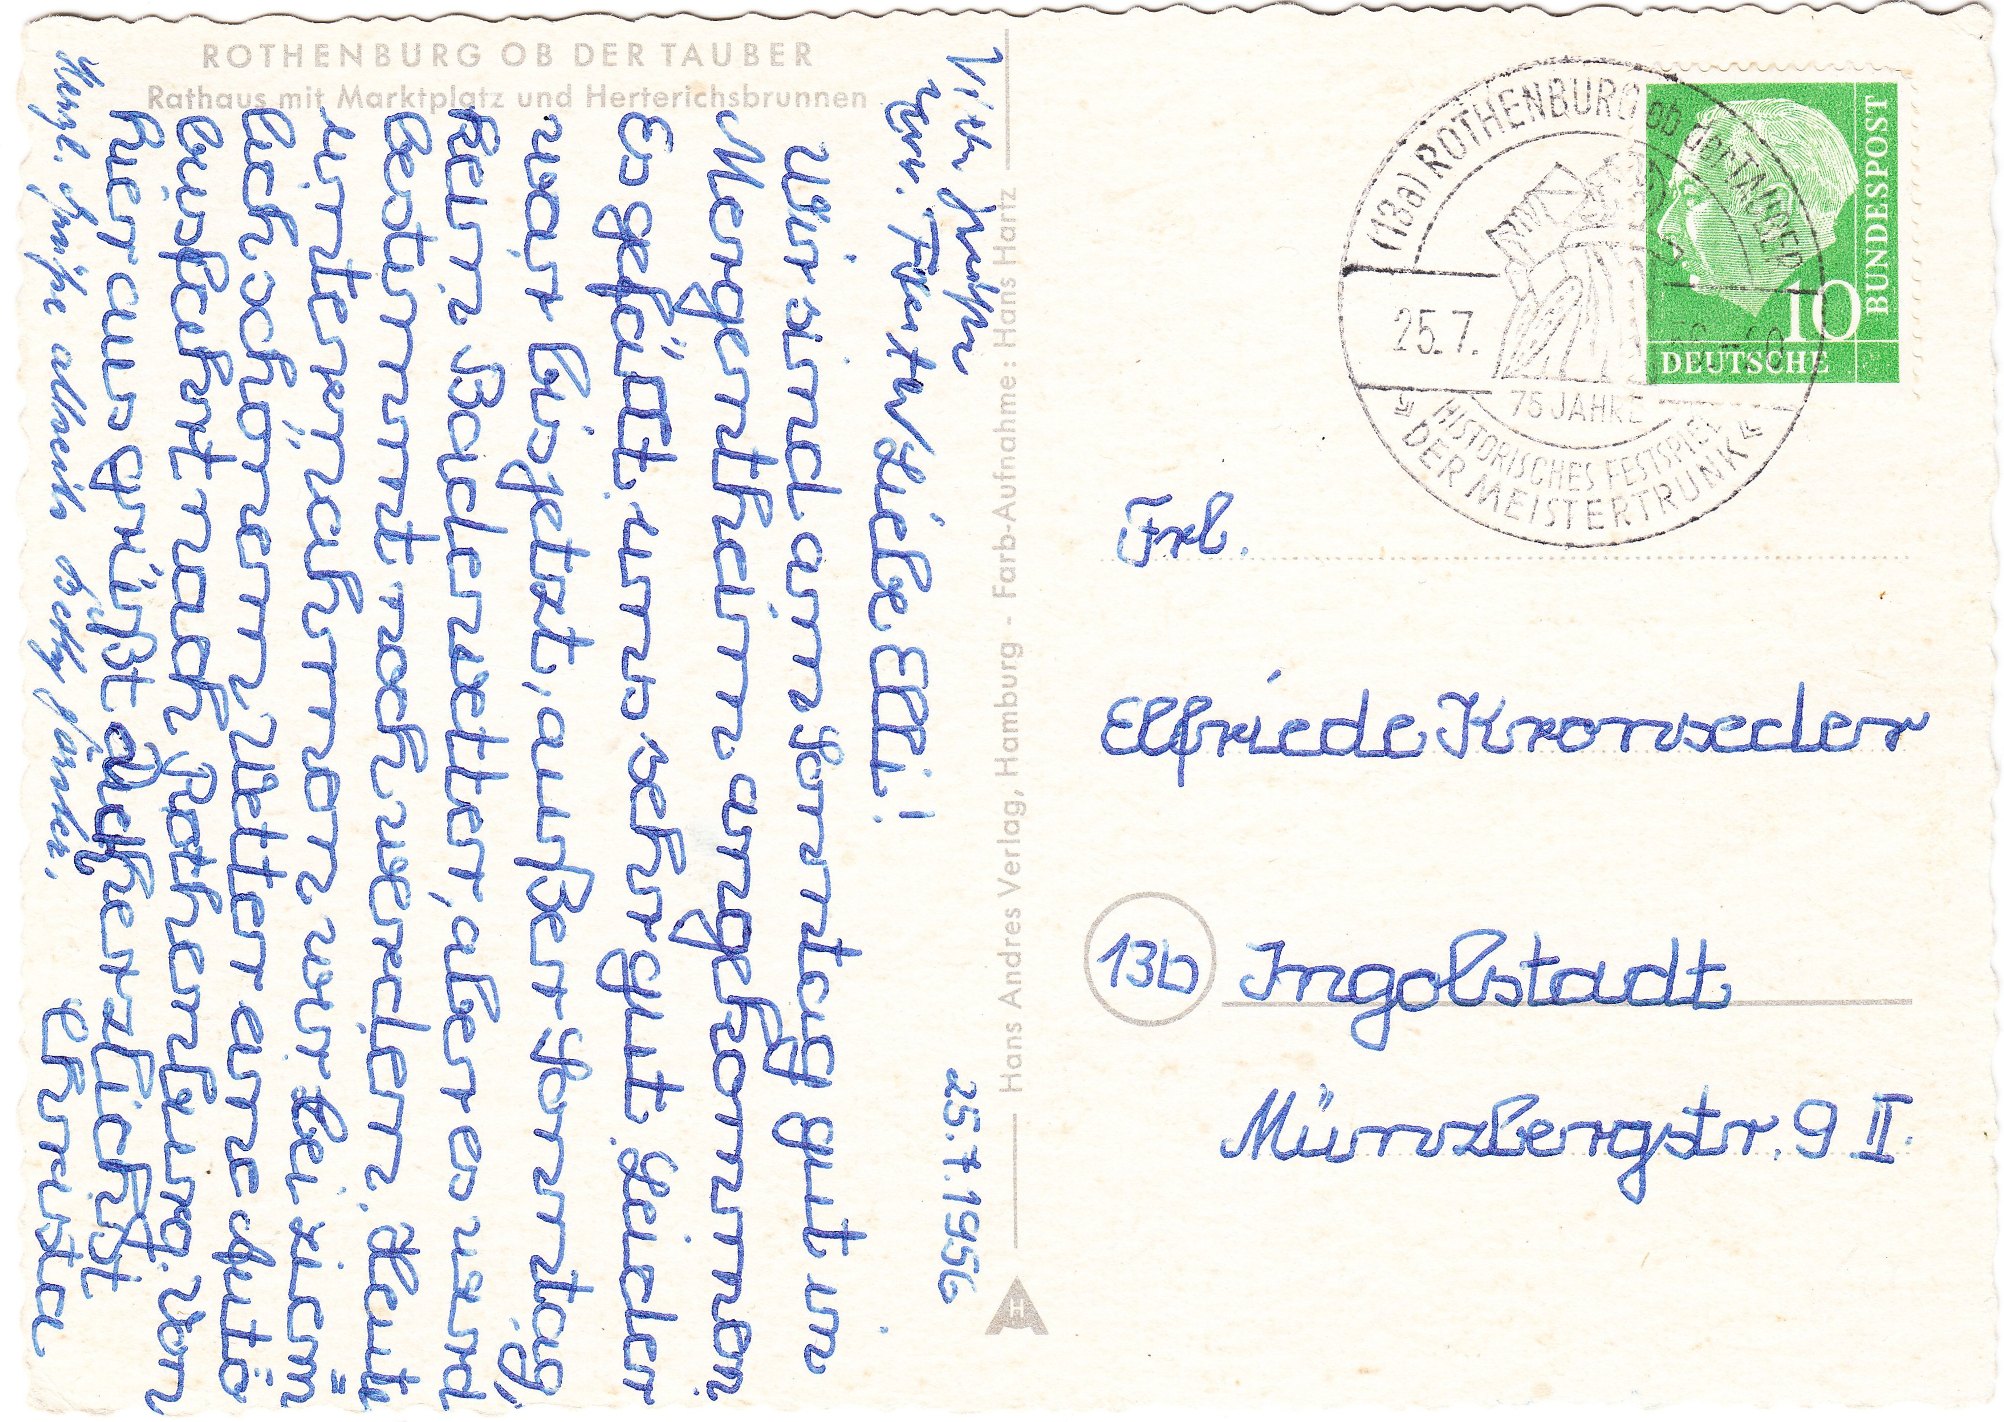 ROTHENBURG OB DER TAUBER
Rathaus mit Marktplatz und Herterichsbrunnen
25.7.1956
Liebe Elli!
Wir sind am Sonntag gut in
Mergentheim angekommen.
Es gefällt uns sehr gut. Leider
war bis jetzt, außer Sonntag,
kein Badewetter, aber es wird
bestimmt noch werden. Heute
unternahmen wir bei ziem=
lich schönem Wetter eine Auto
busfahrt nach Rothenburg. Von
hier aus grüßt Dich herzlichst
Christa
Herzl. Grüße allseits Betty
Viele Grüße
Hans Andres Verlag, Hamburg - Farb-Aufnahme: Hans Hartz
HA
(13a) ROTHENBURG ob der TAUBER
25.7.
75 JAHRE
HISTORISCHES FESTSPIEL
"DER MEISTERTRUNK"
10
DEUTSCHE
BUNDESPOST
Frl.
Elfriede Kronseder
13b Ingolstadt
Münzbergstr. 9 II.